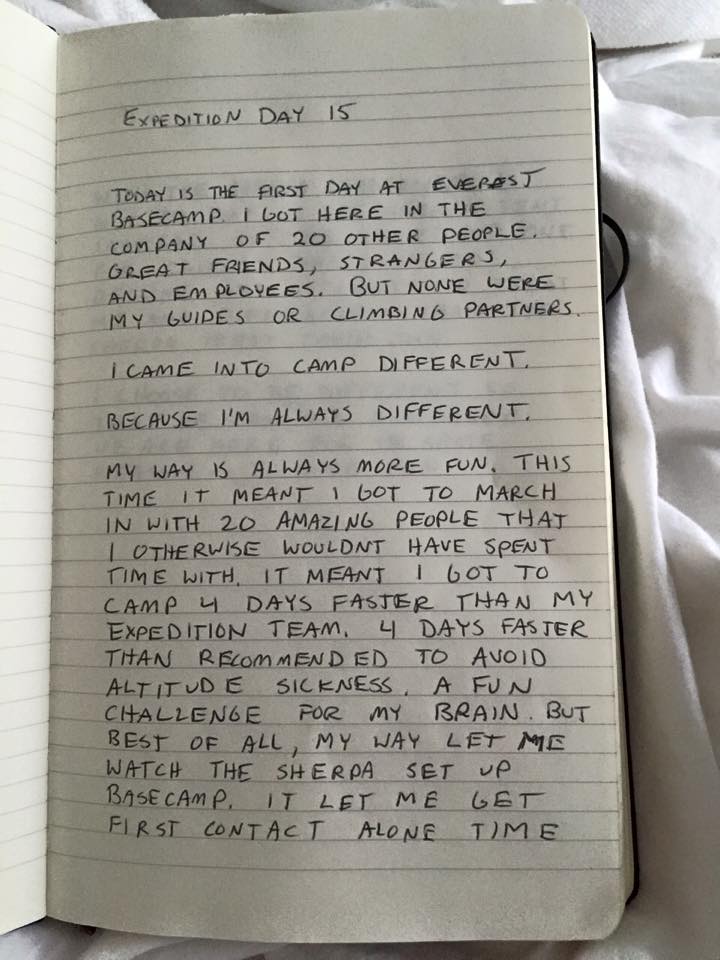 EXPEDITION DAY 15
TODAY IS THE FIRST DAY AT EVEREST
BASECAMP. I GOT HERE IN THE
COMPANY OF 20 OTHER PEOPLE.
GREAT FRIENDS, STRANGERS,
AND EMPLOYEES. BUT NONE WERE
MY GUIDES OR CLIMBING PARTNERS.
I CAME INTO CAMP DIFFERENT.
BECAUSE I'M ALWAYS DIFFERENT.
MY WAY IS ALWAYS MORE FUN. THIS
TIME IT MEANT I GOT TO MARCH
IN WITH 20 AMAZING PEOPLE THAT
I OTHERWISE WOULDNT HAVE SPENT
TIME WITH. IT MEANT I GOT TO
CAMP 4 DAYS FASTER THAN MY
EXPEDITION TEAM. 4 DAYS FASTER
THAN RECOMMENDED TO AVOID
ALTITUDE SICKNESS. A FUN
CHALLENGE FOR MY BRAIN. BUT
BEST OF ALL, MY WAY LET ME
WATCH THE SHERPA SET UP
BASECAMP. IT LET ME GET
FIRST CONTACT ALONE TIME